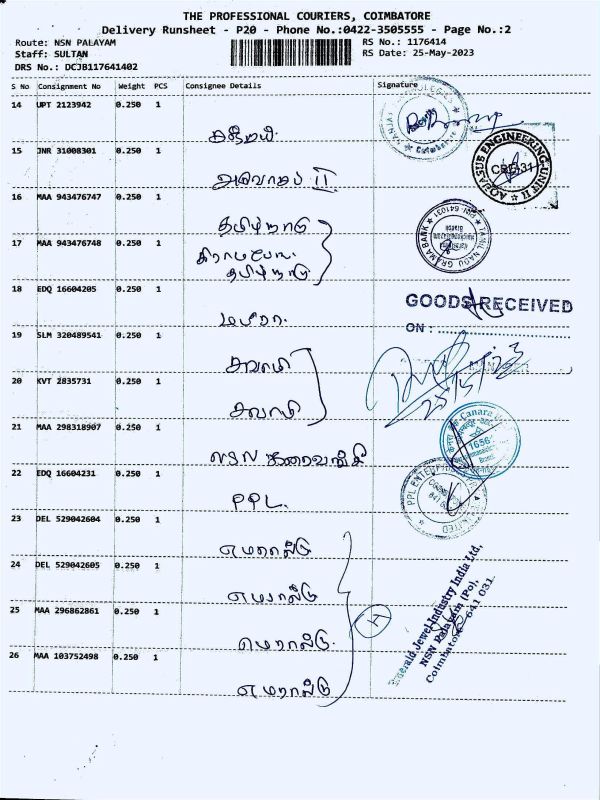 THE PROFESSIONAL COURIERS, COIMBATORE
Delivery Runsheet - P20 - Phone No.:0422-3505555 - Page No.:2
Route: NSN PALAYAM RS No.: 1176414
Staff: SULTAN RS Date: 25-May-2023
DRS No.: DCJB117641402
S No Consignment No Weight PCS Consignee Details Signature
14 UPT 2123942 0.250 1
15 JNR 31008301 0.250 1
II
16 MAA 943476747 0.250 1
தமிழ்நாடு
17 MAA 943476748 0.250 1
தமிழ்நாடு
18 EDQ 16604205 0.250 1
GOODS RECEIVED
ON :
19 SLM 320489541 0.250 1
சுவாமி
20 KVT 2835731 0.250 1
சுவாமி
25/5/23
21 MAA 298318907 0.250 1
Canara
22 EDQ 16604231 0.250 1
PPL.
PPL ENTERPRISES LIMITED
23 DEL 529042604 0.250 1
எமரால்டு
24 DEL 529042605 0.250 1
எமரால்டு
25 MAA 296862861 0.250 1
எமரால்டு
26 MAA 103752498 0.250 1
எமரால்டு
4
AQUASUB ENGINEERING UNIT II
CBE-31
TAMIL NADU GRAMA BANK
Emerald Jewel Industry India Ltd,
NSN Palayam (Po),
Coimbatore - 641 031.